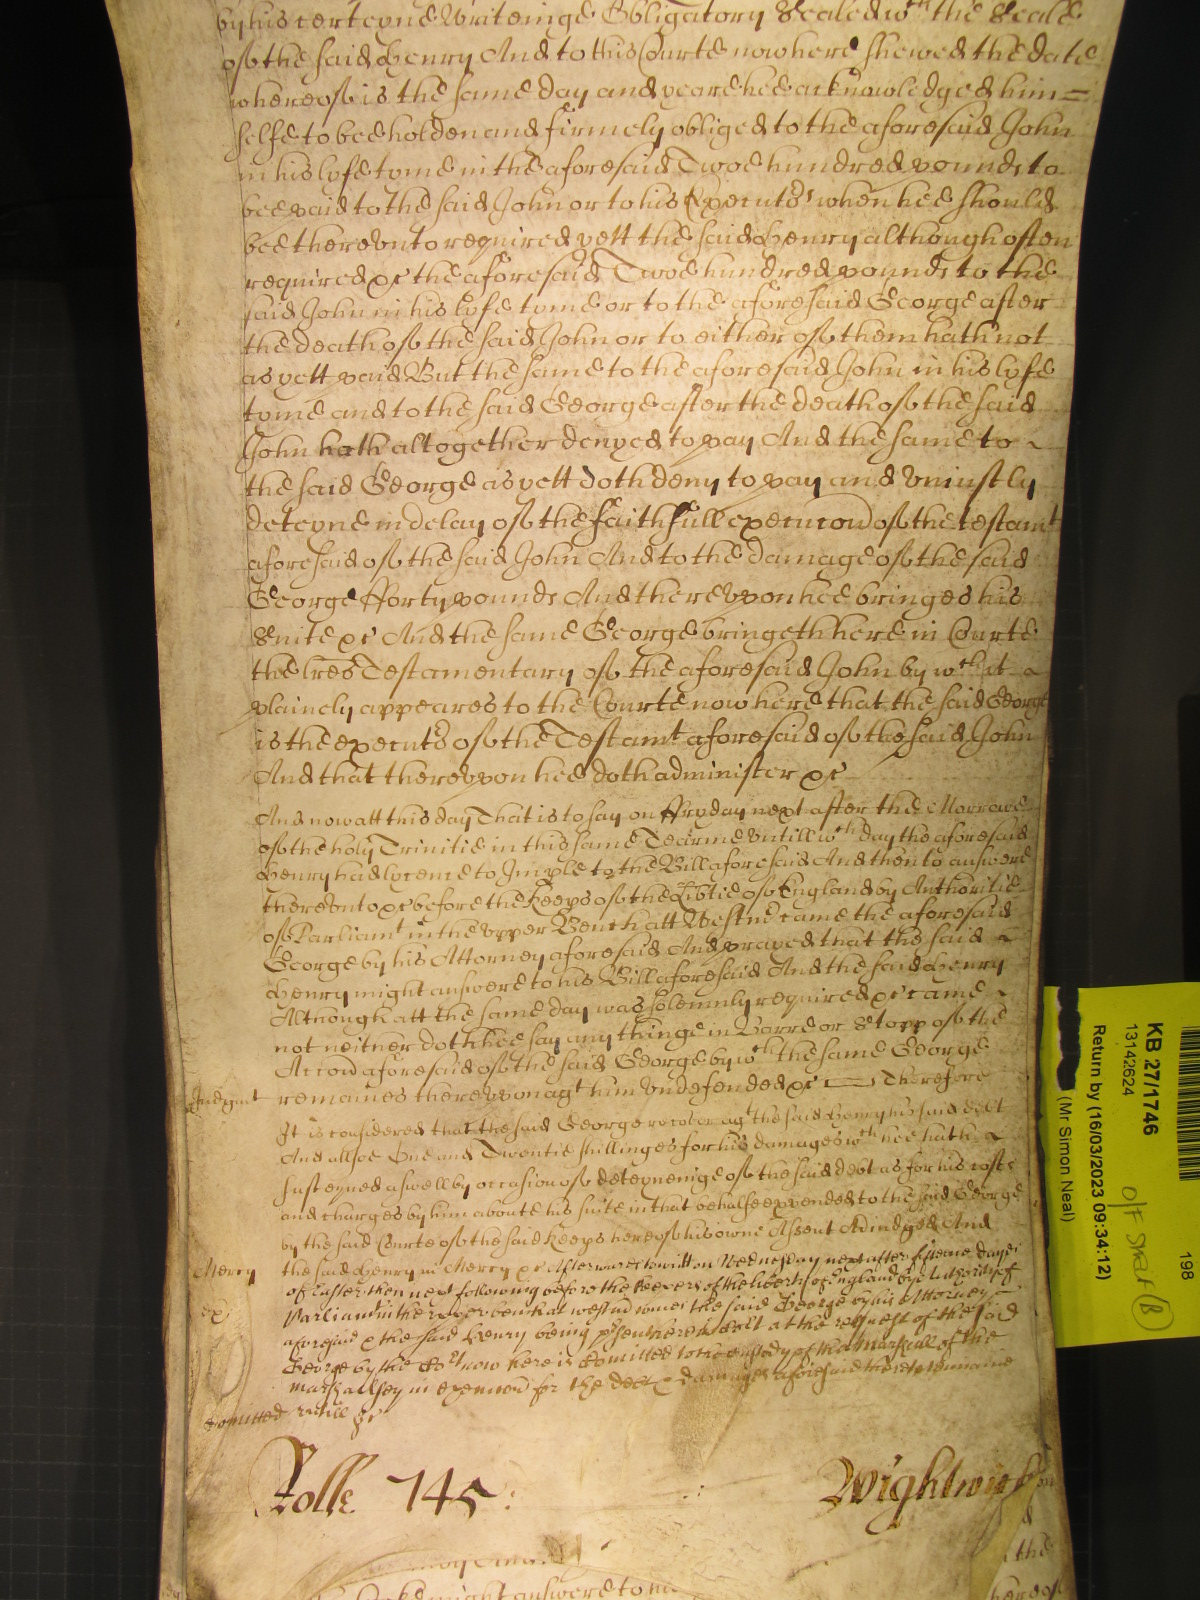 by his certeyne Writeinge Obligatory Sealed wth the Seale
of the said Henry And to this Courte now here shewed the date
whereof is the same day and yeare hee acknowledged him=
selfe to bee holden and firmely obliged to the aforesaid John
in his lyfe tyme in the aforesaid Twoe hundred pounds to
bee paid to the said John or to his Executors when hee should
bee therevnto required yett the said Henry although often
required &c the aforesaid Twoe hundred pounds to the
said John in his lyfe tyme or to the aforesaid George after
the death of the said John or to either of them hath not
as yett paid But the same to the aforesaid John in his lyfe
tyme and to the said George after the death of the said
John hath altogether denyed to pay And the same to
the said George as yett doth deny to pay and vniustly
deteyne in delay of the faithfull execucion of the testamt
aforesaid of the said John And to the damage of the said
George fforty pounds And therevpon hee bringes his
Suite &c And the same George bringeth here in Courte
the lres Testamentary of the aforesaid John by wch it
plainely appeares to the Courte now here that the said George
is the executor of the Testamt aforesaid of the said John
And that therevpon hee doth administer &c
And now att this day That is to say on ffryday next after the Morrowe
of the holy Trinitie in this same Tearme vntill wch day the aforesaid
Henry had lycence to Imple to the Bill aforesaid And then to answere
therevnto &c before the Keeps of the Libtie of England by Authoritie
of Parliamt in the vpper Bench att Westmr came the aforesaid
George by his Attorney aforesaid And prayed that the said
Henry might answere to his Bill aforesaid And the said Henry
Although att the same day was solemnly required &c came
not neither doth hee say any thinge in Barre or Stopp of the
Accion aforesaid of the said George by wch the same George
Judgmt remaines therevpon agt him vndefended &c Therefore
It is considered that the said George recover agt the said Henry his said debt
And allsoe One and Twentie shillinges for his damages wch hee hath
susteyned aswell by occasion of deteyneinge of the said debt as for his costs
and charges by him aboute his suite in that behalfe expended to the said George
by the said Courte of the said Keeps here of his owne Assent Adiudged And
Mercy the said Henry in Mercy &c Afterwards to witt on Wednesday next after fifteene dayes
of Easter then next following before the keepers of the liberty of England by Authority of
Parliamt in the vpper bench at Westmr comes the said George by his Attorney
aforesaid & the said Henry being psent here in Court at the request of the said
George by the Cort now here is Comitted to the custody of the Marshall of the
Marshallsey in execucion for the debt & damages aforesaid there to remaine
Comitted vntill &c
Rolle 745: Wightwick
might answere to
the
KB 27/1746
13142624
Return by (16/03/2023 09:34:12)
(Mr Simon Neal)
198